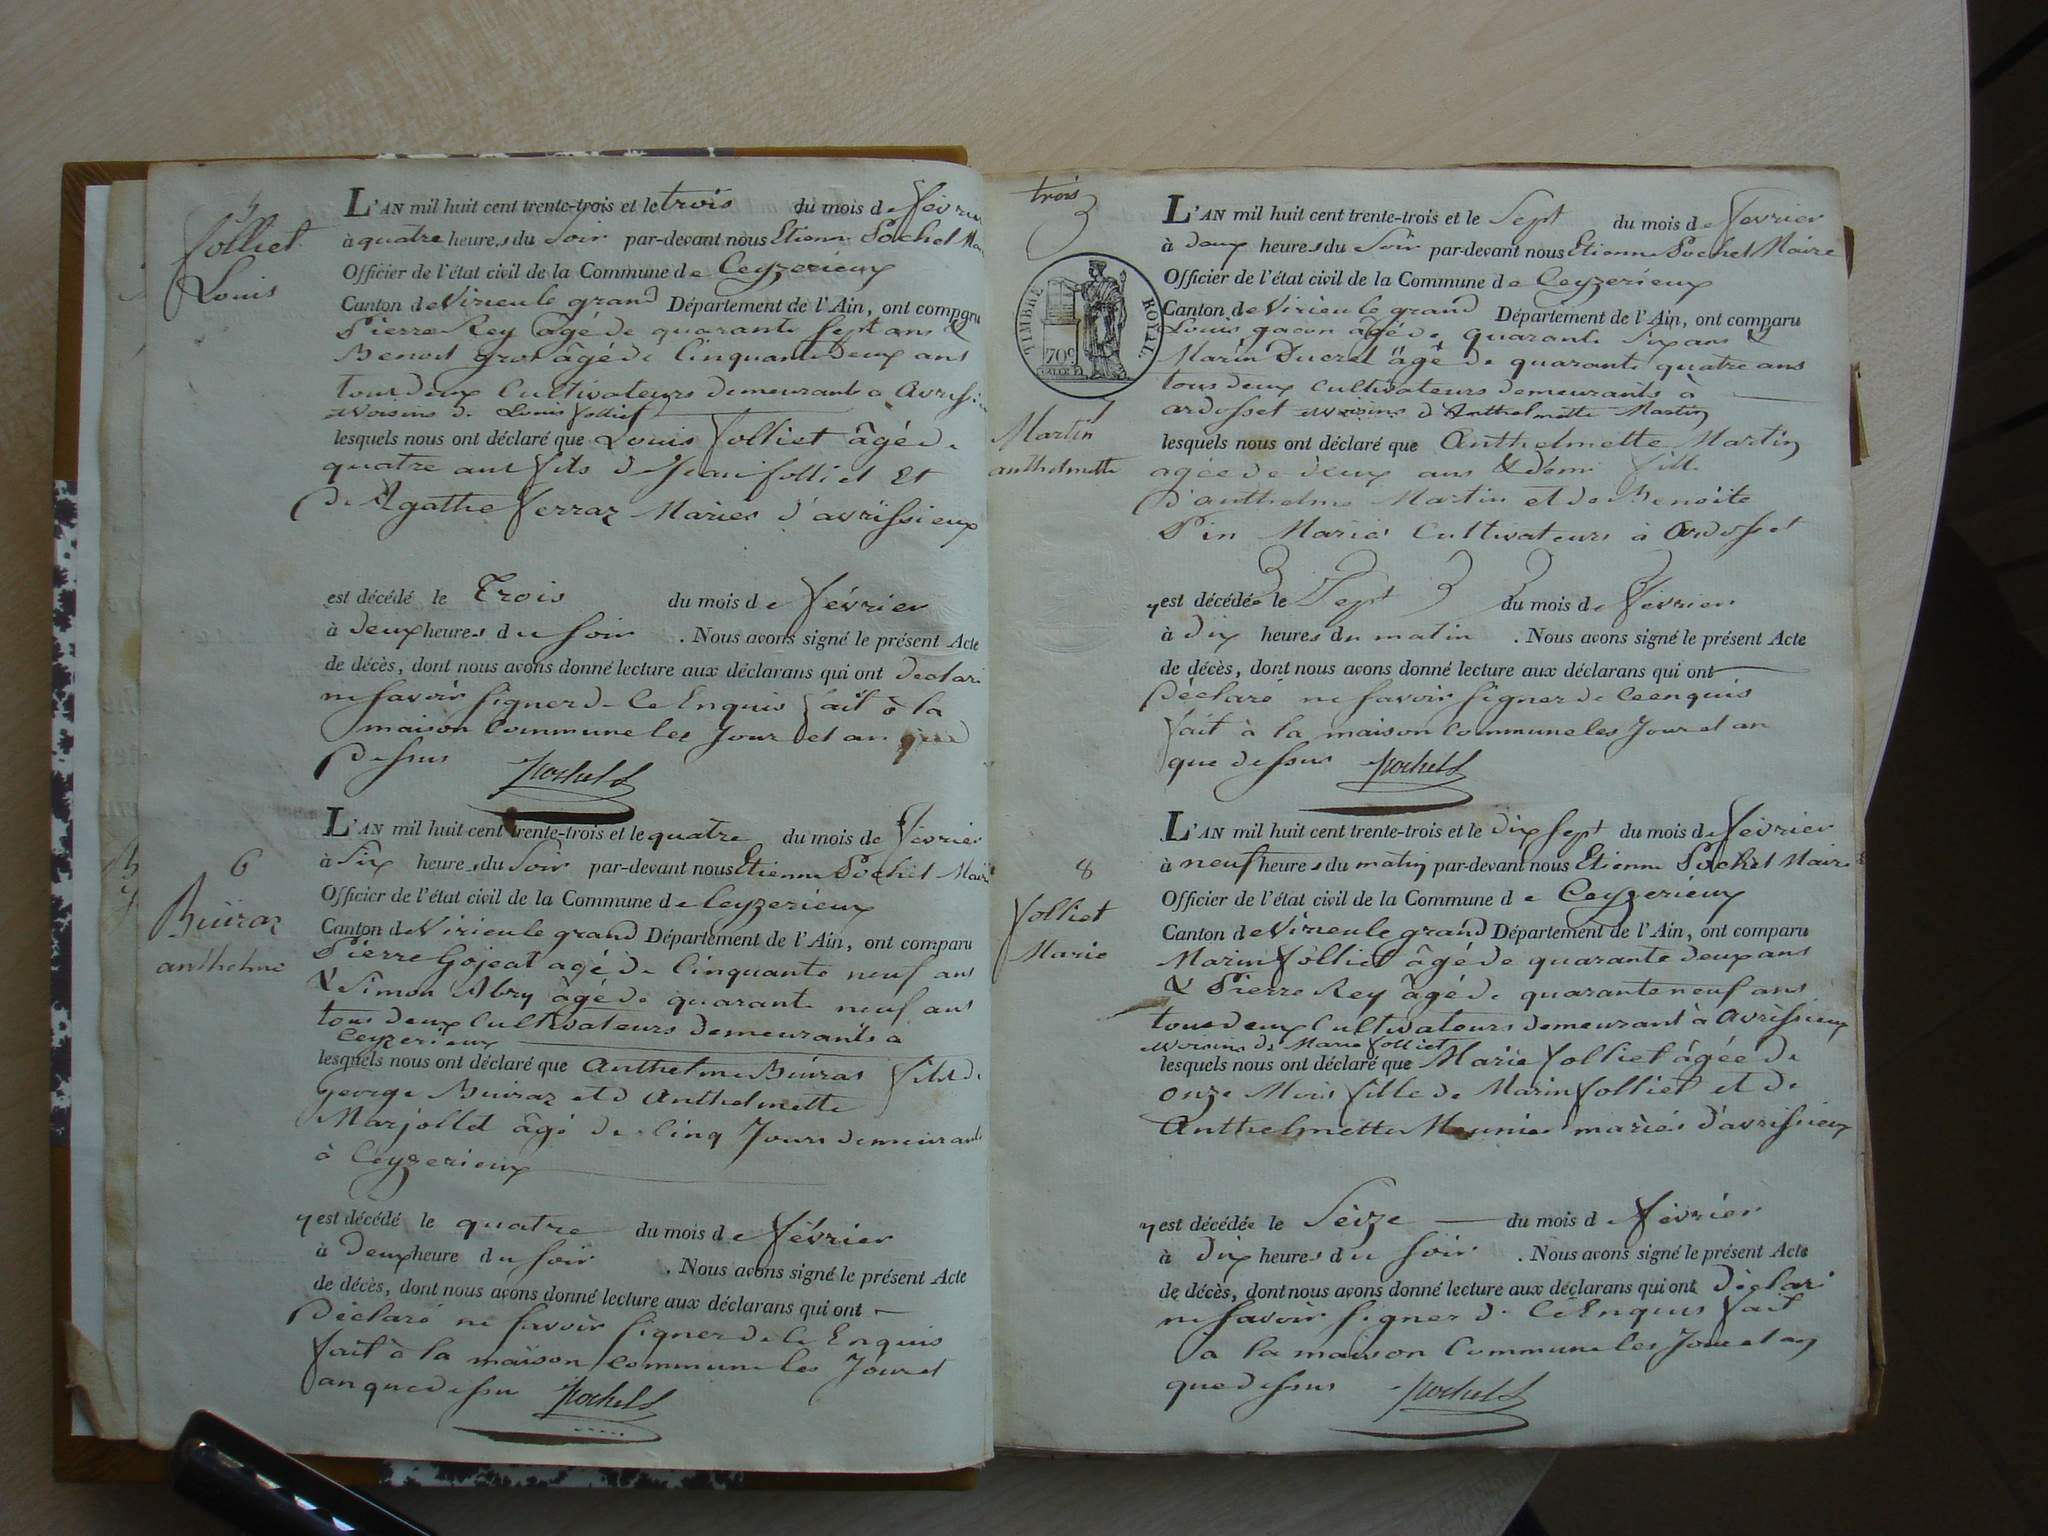 5
Jolliet
Louis
L'AN mil huit cent trente-trois et le trois du mois de février
à quatre heures du Soir par-devant nous Etienne Pochet
Officier de l'état civil de la Commune de Ceyzerieux
Canton de Virieu le grand Département de l'Ain, ont comparu
Pierre Rey âgé de quarante sept ans &
Benoit gros âgé de Cinquante Deux ans
tous deux Cultivateurs demeurants a
voisins de Louis Jolliet
lesquels nous ont déclaré que Louis Jolliet âgé de
quatre ans fils de Jean Jolliet Et
de Agathe ferraz Mariés d'avrissieux
est décédé le Trois du mois de février
à deux heures du soir . Nous avons signé le présent Acte
de décès, dont nous avons donné lecture aux déclarans qui ont declaré
ne savoir signer de Ce Enquis fait à la
maison Commune les Jour et an que
Dessus Pochet
6
Buiraz
anthelme
L'AN mil huit cent trente-trois et le quatre du mois de février
à Six heures du Soir par-devant nous Etienne Pochet Maire
Officier de l'état civil de la Commune de Ceyzerieux
Canton de Virieu le grand Département de l'Ain, ont comparu
Pierre Gojeat agé de Cinquante neuf ans
& Simon Abry âgé de quarante neuf ans
tous deux Cultivateurs demeurants a
Ceyzerieux
lesquels nous ont déclaré que Anthelme Buiraz fils de
George Buiraz et d Anthelmette
Marjollet âgé de Cinq Jours demeurants
à Ceyzerieux
y est décédé le quatre du mois de février
à Deux heure du soir . Nous avons signé le présent Acte
de décès, dont nous avons donné lecture aux déclarans qui ont
Déclaré ne savoir signer de Ce Enquis
fait à la maison Commune les Jour et
an que dessu Pochet
trois
3
TIMBRE ROYAL.
70c
7
Martin
anthelmette
L'AN mil huit cent trente-trois et le Sept du mois de fevrier
à deux heures du Soir par-devant nous Etienne Pochet Maire
Officier de l'état civil de la Commune de Ceyzerieux
Canton de Virieu le grand Département de l'Ain, ont comparu
Louis gacon âgé de quarante Six ans &
Marin Ducret âgé de quarante quatre ans
tous deux Cultivateurs demeurants à
ardosset voisins d'Anthelmette Martin
lesquels nous ont déclaré que Anthelmette Martin
agée de deux ans & demi fille
d'anthelme Martin et de Benoite
Pin Mariés Cultivateurs à Ardosset
y est décédée le Sept du mois de février
à dix heures du matin . Nous avons signé le présent Acte
de décès, dont nous avons donné lecture aux déclarans qui ont
Déclaré ne savoir signer de Ce enquis
fait à la maison Commune les Jour et an
que dessus Pochet
8
Jolliet
Marie
L'AN mil huit cent trente-trois et le dix sept du mois de février
à neuf heures du matin par-devant nous Etienne Pochet Maire
Officier de l'état civil de la Commune de Ceyzerieux
Canton de Virieu le grand Département de l'Ain, ont comparu
Marin Jolliet âgé de quarante deux ans
& Pierre Rey âgé de quarante neuf ans
tous deux Cultivateurs demeurant à Avrissieux
voisins de Marie Jolliet
lesquels nous ont déclaré que Marie Jolliet âgée de
onze Mois fille de Marin Jolliet et de
Anthelmette Meunier mariés d'avrissieux
y est décédée le Seize du mois de février
à dix heures du soir . Nous avons signé le présent Acte
de décès, dont nous avons donné lecture aux déclarans qui ont déclaré
ne savoir signer de Ce Enquis fait
a la maison Commune les Jour et an
que dessus Pochet